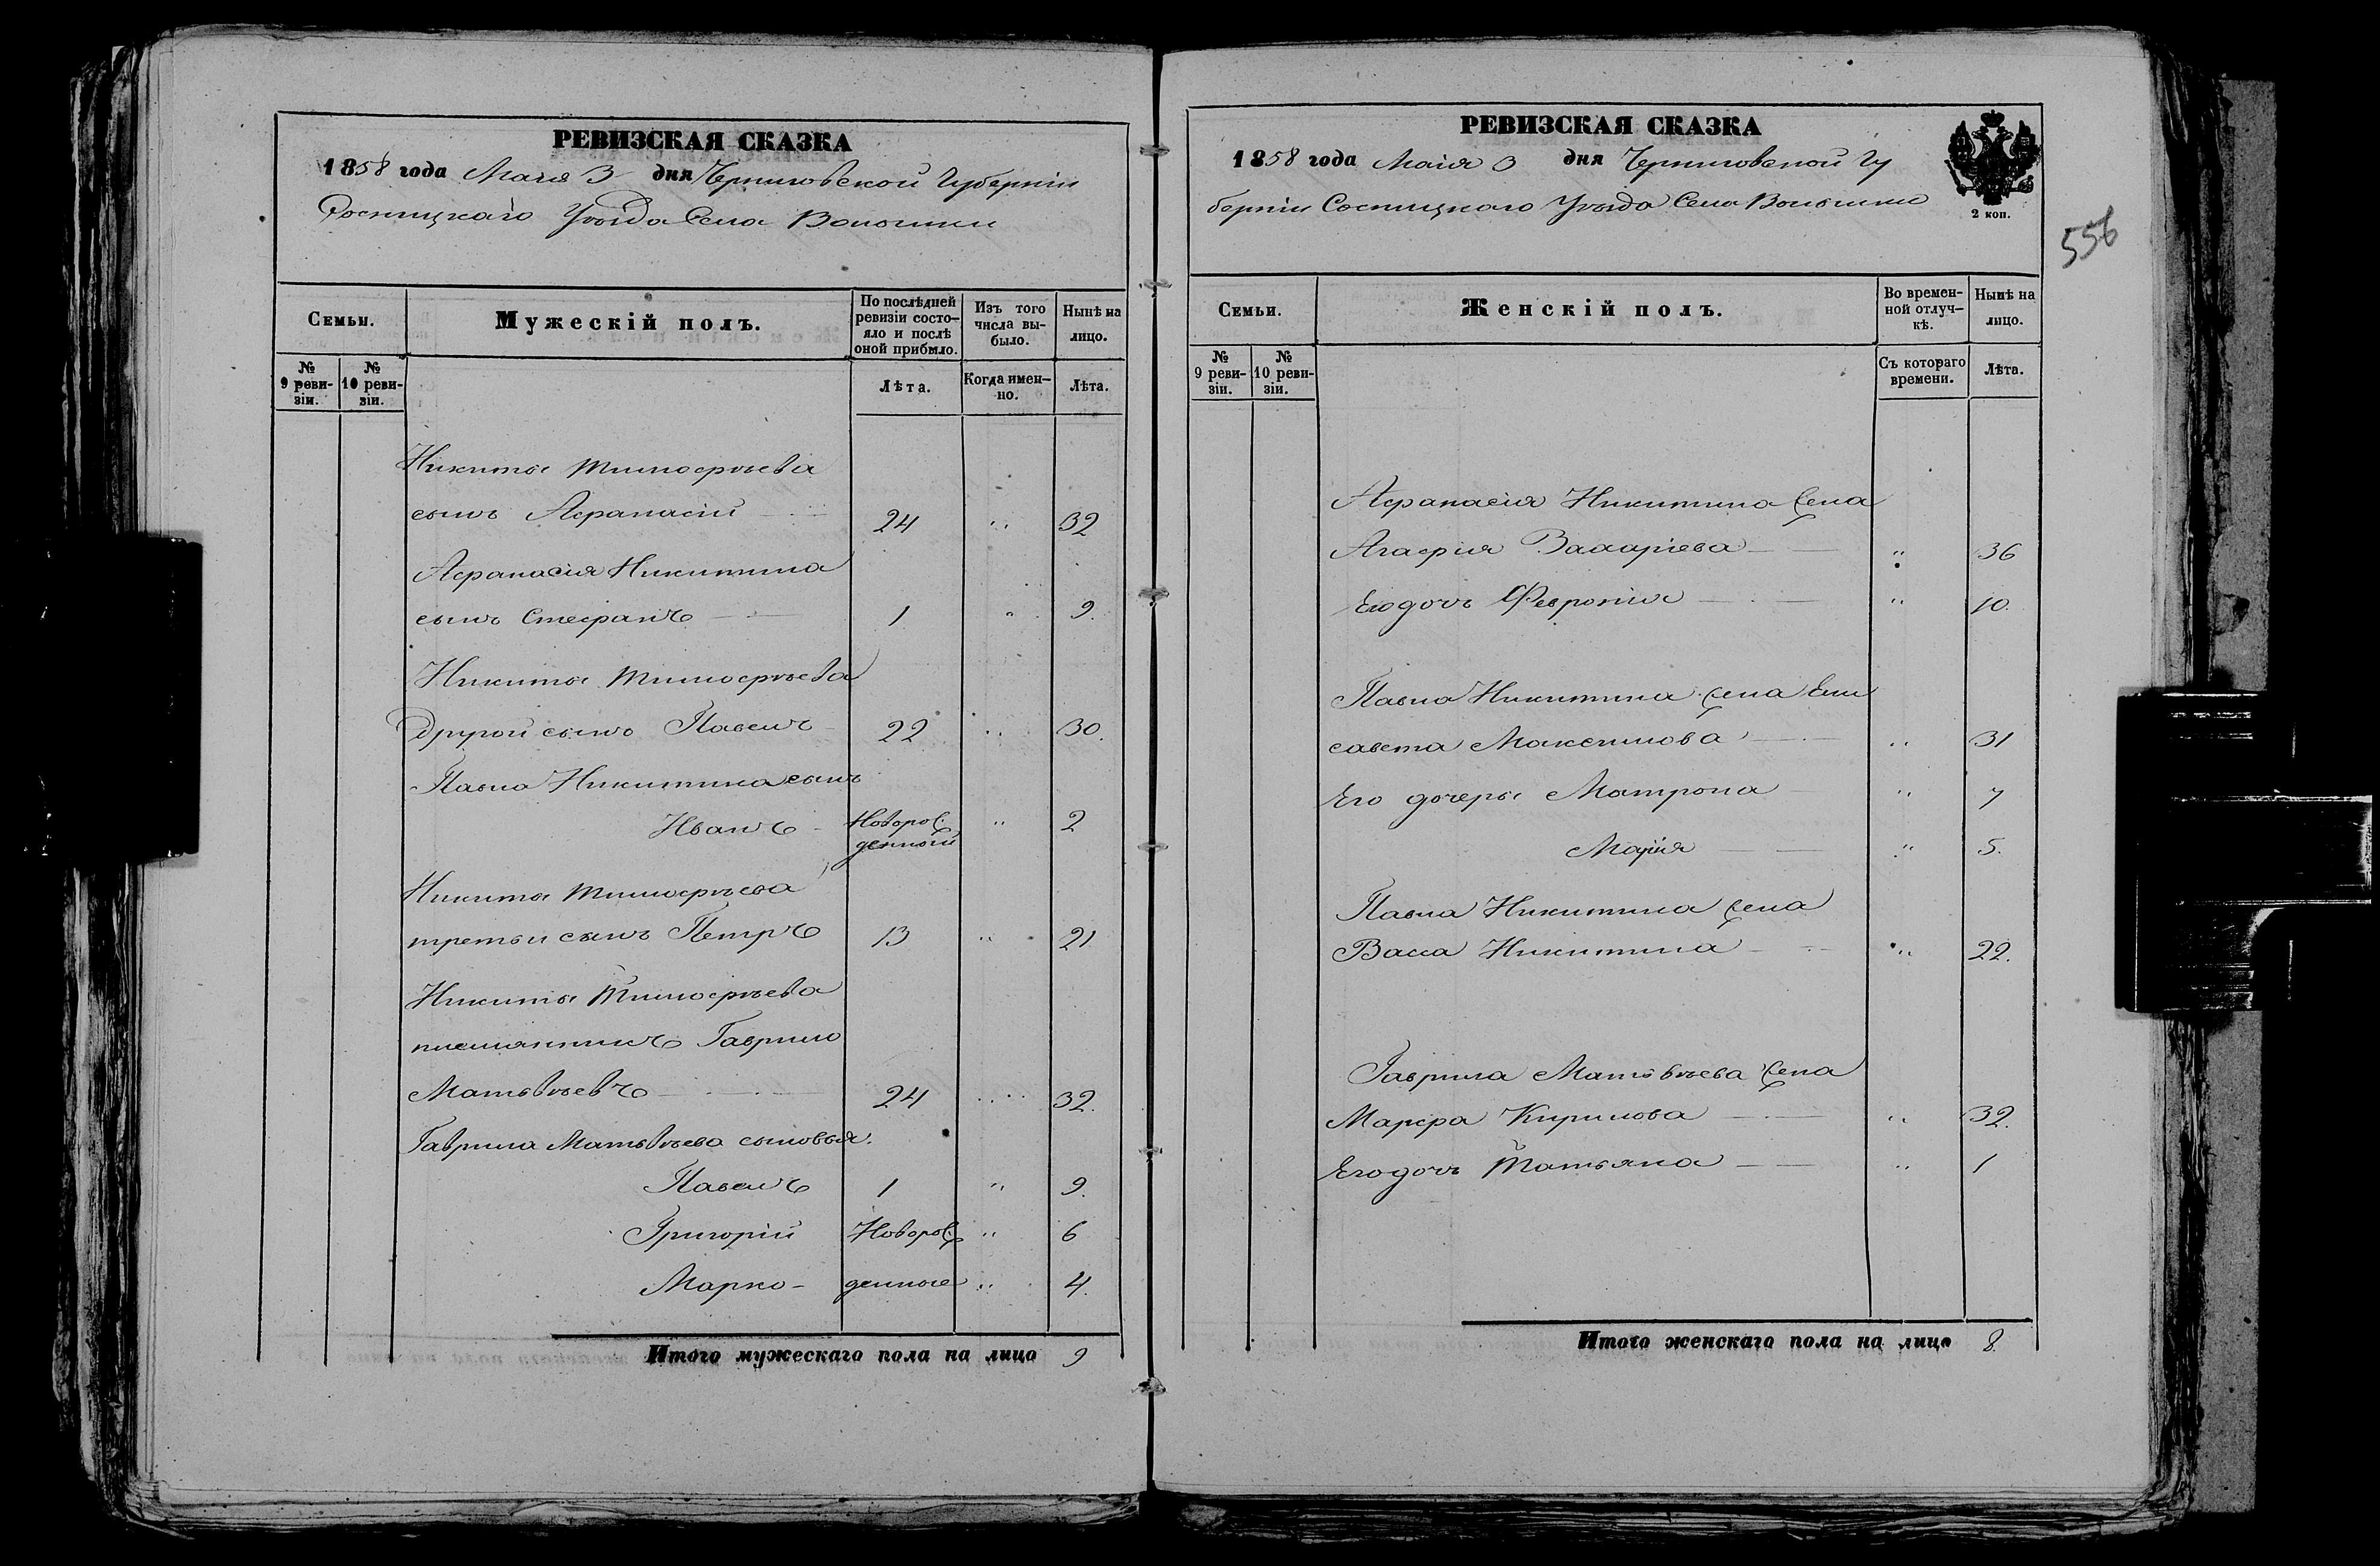 РЕВИЗСКАЯ СКАЗКА
1858 года Маія 3 дня Черниговской Губерніи
Сосницкаго Уѣзда Села Волынки
Семьи.
Мужескій полъ.
По послѣдней ревизіи состо-
яло и послѣ
оной прибыло.
Изъ того
числа вы-
было.
Нынѣ на
лицо.
№
9 реви-
зіи.
№
10 реви-
зіи.
Лѣта.
Когда имен-
но.
Лѣта.
Никиты Тимофѣева
сынъ Афанасій 24 " 32
Афанасія Никитина
сынъ Стефанъ 1 " 9.
Никиты Тимофѣева
Другой сынъ Павелъ 22 " 30.
Павла Никитина сынъ
Иванъ - Новорож
денный " 2
Никиты Тимофѣева
третьи сынъ Петръ 13 " 21
Никиты Тимофѣева
племянникъ Гаврило
Матвѣевъ 24 " 32.
Гаврила Матвѣева сыновья.
Павелъ 1 " 9.
Григорій Новорож " 6
Марко - денные " 4.
Итого мужескаго пола на лицо 9
РЕВИЗСКАЯ СКАЗКА
1858 года Маія 3 дня Черниговской Гу
берніи Сосницкаго Уѣзда Села Волынки
2 коп.
556
Семьи.
Женскій полъ.
Во времен-
ной отлуч-
кѣ.
Нынѣ на
лицо.
№
9 реви-
зіи.
№
10 реви-
зіи.
Съ котораго
времени.
Лѣта.
Афанасія Никитина жена
Агафія Захаріева " 36
Его дочь Февронія " 10.
Павла Никитина жена Ели
савета Максимова " 31
Его дочеры Матрона " 7
Марія " 5.
Павла Никитина жена
Васса Никитина " 22.
Гаврила Матвѣева жена
Марфа Кирилова " 32.
Его дочь Татьяна " 1
Итого женскаго пола на лицо 8.